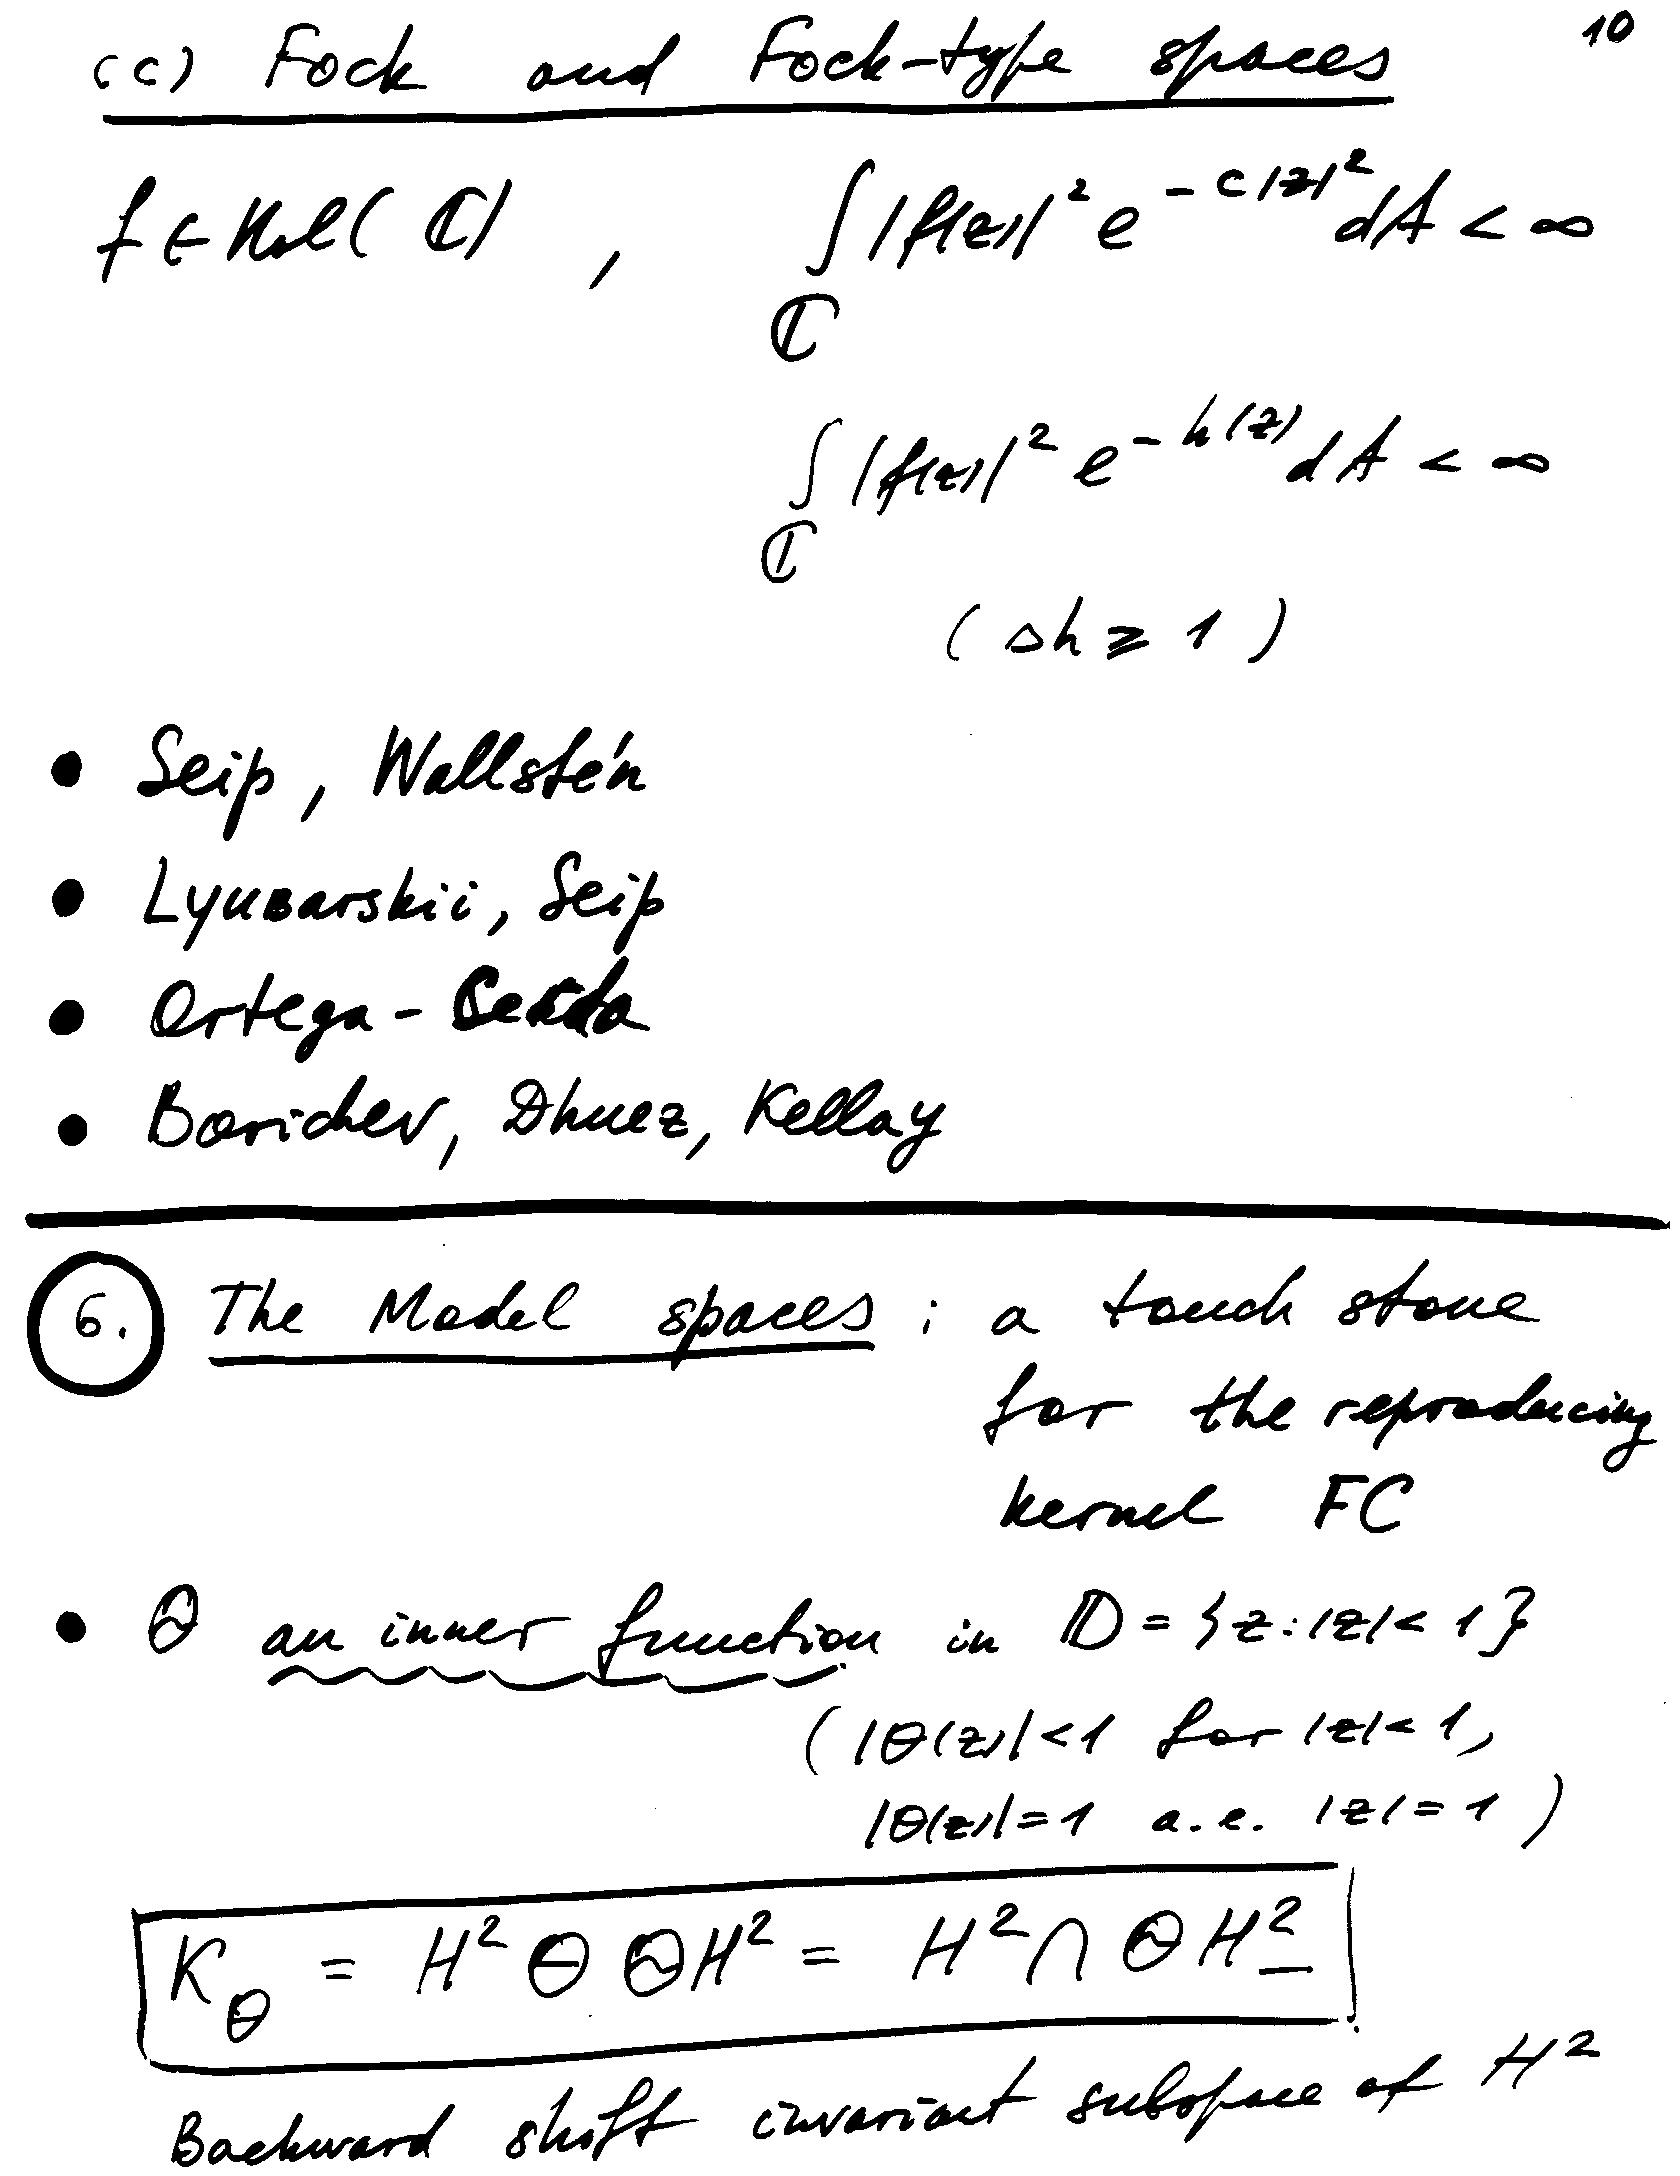 10
(c) Fock and Fock-type spaces
f ∈ Hol(ℂ), ∫_ℂ |f(z)|² e^{-c|z|²} dA < ∞
∫_ℂ |f(z)|² e^{-h(z)} dA < ∞
(Δh ≥ 1)
• Seip, Wallstén
• Lyubarskii, Seip
• Ortega-Cerdà
• Borichev, Dhuez, Kellay
6. The Model spaces: a touch stone
for the reproducing
kernel FC
• Θ an inner function in 𝔻 = {z: |z| < 1}
(|Θ(z)| < 1 for |z| < 1,
|Θ(z)| = 1 a.e. |z| = 1)
K_Θ = H² ⊖ ΘH² = H² ∩ Θ H²_-
Backward shift invariant subspace of H²